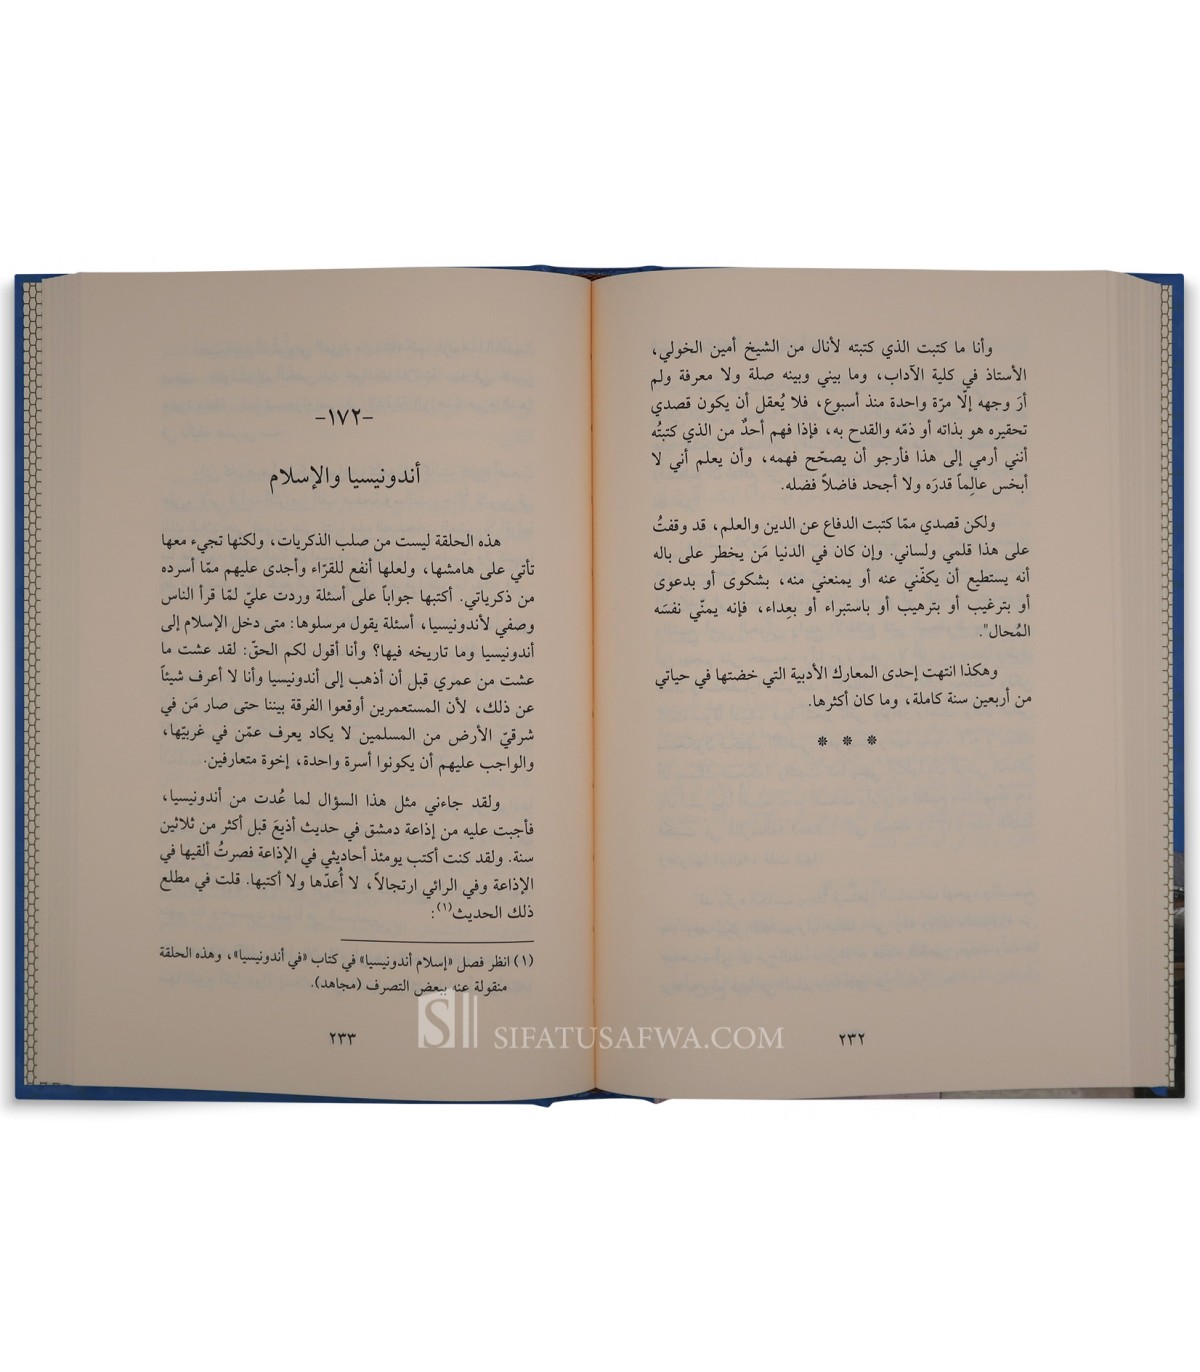 وأنا ما كتبت الذي كتبته لأنال من الشيخ أمين الخولي،
الأستاذ في كلية الآداب، وما بيني وبينه صلة ولا معرفة ولم
أرَ وجهه إلّا مرّة واحدة منذ أسبوع، فلا يُعقل أن يكون قصدي
تحقيره هو بذاته أو ذمّه والقدح به، فإذا فهم أحدٌ من الذي كتبتُه
أنني أرمي إلى هذا فأرجو أن يصحّح فهمه، وأن يعلم أني لا
أبخس عالِماً قدرَه ولا أجحد فاضلاً فضله.
ولكن قصدي ممّا كتبت الدفاع عن الدين والعلم، قد وقفتُ
على هذا قلمي ولساني. وإن كان في الدنيا مَن يخطر على باله
أنه يستطيع أن يكفّني عنه أو يمنعني منه، بشكوى أو بدعوى
أو بترغيب أو بترهيب أو باستبراء أو بعِداء، فإنه يمنّي نفسَه
المُحال".
وهكذا انتهت إحدى المعارك الأدبية التي خضتها في حياتي
من أربعين سنة كاملة، وما كان أكثرها.
* * *
٢٣٢
-١٧٢-
أندونيسيا والإسلام
هذه الحلقة ليست من صلب الذكريات، ولكنها تجيء معها
تأتي على هامشها، ولعلها أنفع للقرّاء وأجدى عليهم ممّا أسرده
من ذكرياتي. أكتبها جواباً على أسئلة وردت عليّ لمّا قرأ الناس
وصفي لأندونيسيا، أسئلة يقول مرسلوها: متى دخل الإسلام إلى
أندونيسيا وما تاريخه فيها؟ وأنا أقول لكم الحقّ: لقد عشت ما
عشت من عمري قبل أن أذهب إلى أندونيسيا وأنا لا أعرف شيئاً
عن ذلك، لأن المستعمرين أوقعوا الفرقة بيننا حتى صار مَن في
شرقيّ الأرض من المسلمين لا يكاد يعرف عمّن في غربيّها،
والواجب عليهم أن يكونوا أسرة واحدة، إخوة متعارفين.
ولقد جاءني مثل هذا السؤال لما عُدت من أندونيسيا،
فأجبت عليه من إذاعة دمشق في حديث أذيعَ قبل أكثر من ثلاثين
سنة. ولقد كنت أكتب يومئذ أحاديثي في الإذاعة فصرتُ ألقيها في
الإذاعة وفي الرائي ارتجالاً، لا أُعدّها ولا أكتبها. قلت في مطلع
ذلك الحديث(١):
(١) انظر فصل «إسلام أندونيسيا» في كتاب «في أندونيسيا»، وهذه الحلقة
منقولة عنه ببعض التصرف (مجاهد).
٢٣٣
SIFATUSAFWA.COM